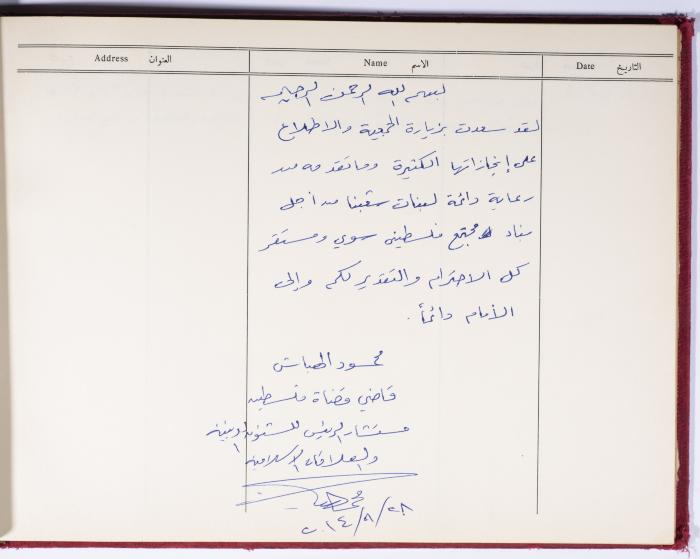 Address العنوان Name الاسم Date التاريخ
بسم الله الرحمن الرحيم
لقد سعدت بزيارة الجمعية والاطلاع
على إنجازاتها الكثيرة وما تقدمه من
رعاية دائمة لبنات شعبنا من أجل
بناء مجتمع فلسطيني سوي ومستقر
كل الاحترام والتقدير لكم وإلى
الأمام دائماً .
محمود الهباش
قاضي قضاة فلسطين
مستشار الرئيس للشئون الدينية
والعلاقات الإسلامية
٢٠١٤/٨/٢٨